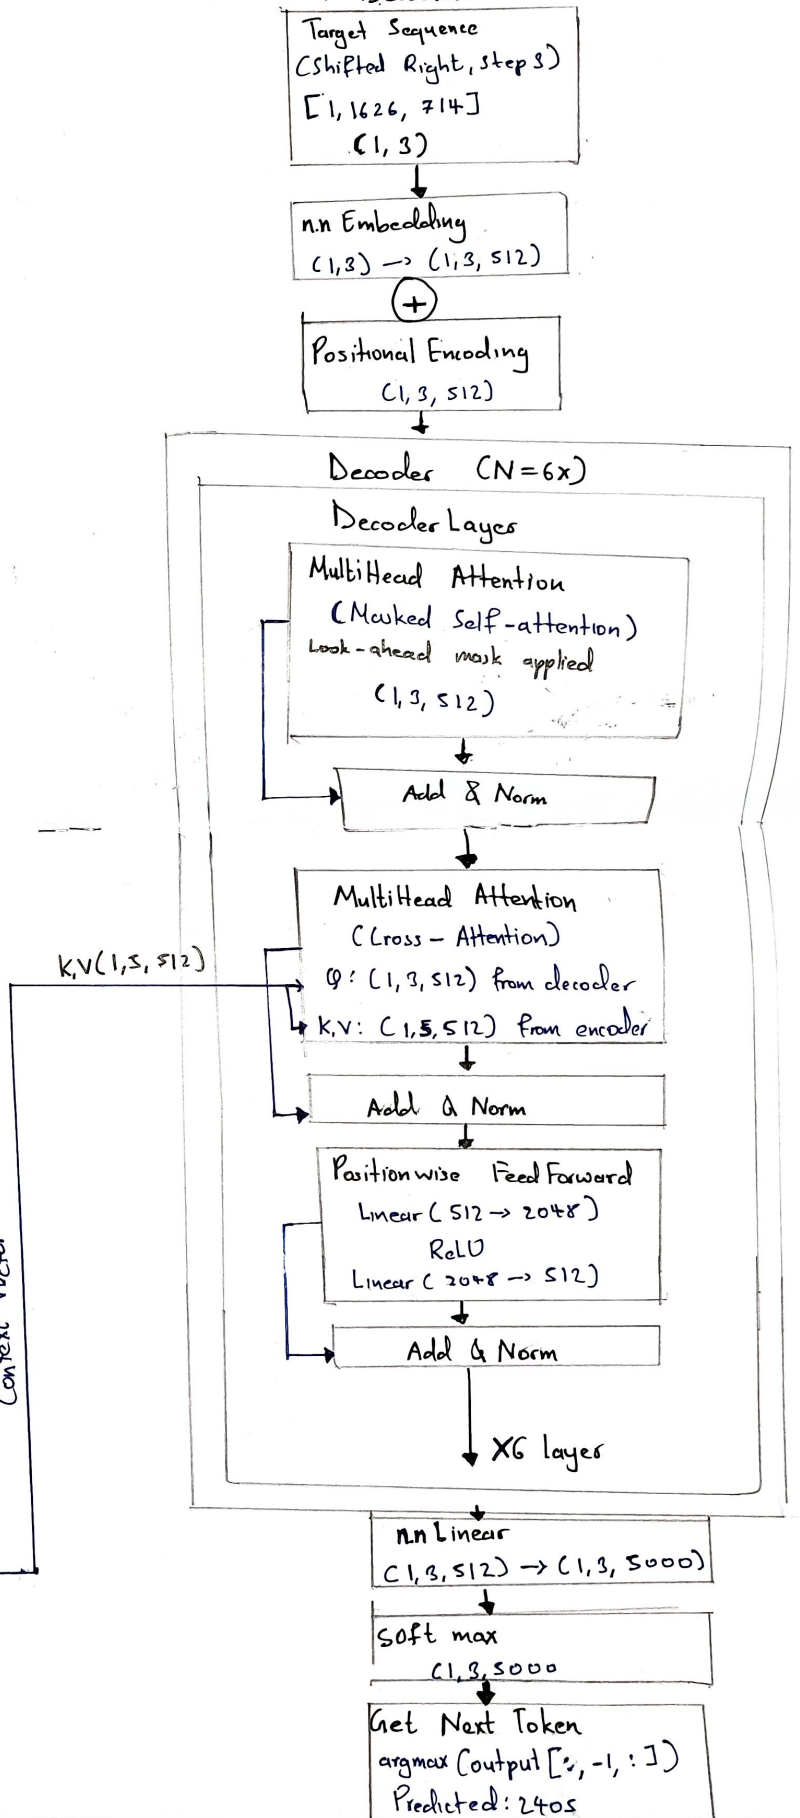 Target Sequence
(Shifted Right, Step 3)
[1, 1626, 714]
(1, 3)
n.n Embedding
(1,3) → (1,3, 512)
+
Positional Encoding
(1, 3, 512)
Decoder (N=6x)
Decoder Layer
MultiHead Attention
(Masked Self-attention)
Look-ahead mask applied
(1,3, 512)
Add & Norm
MultiHead Attention
(Cross-Attention)
K,V(1,5, 512)
Q: (1, 3, 512) from decoder
K,V: (1,5,512) from encoder
Add & Norm
Positionwise FeedForward
Linear (512 → 2048)
ReLU
Linear (2048 → 512)
Context Vector
Add & Norm
X6 layer
n.n Linear
(1,3,512) → (1,3, 5000)
Soft max
(1,3,5000
Get Next Token
argmax (output [:, -1, :])
Predicted: 2405